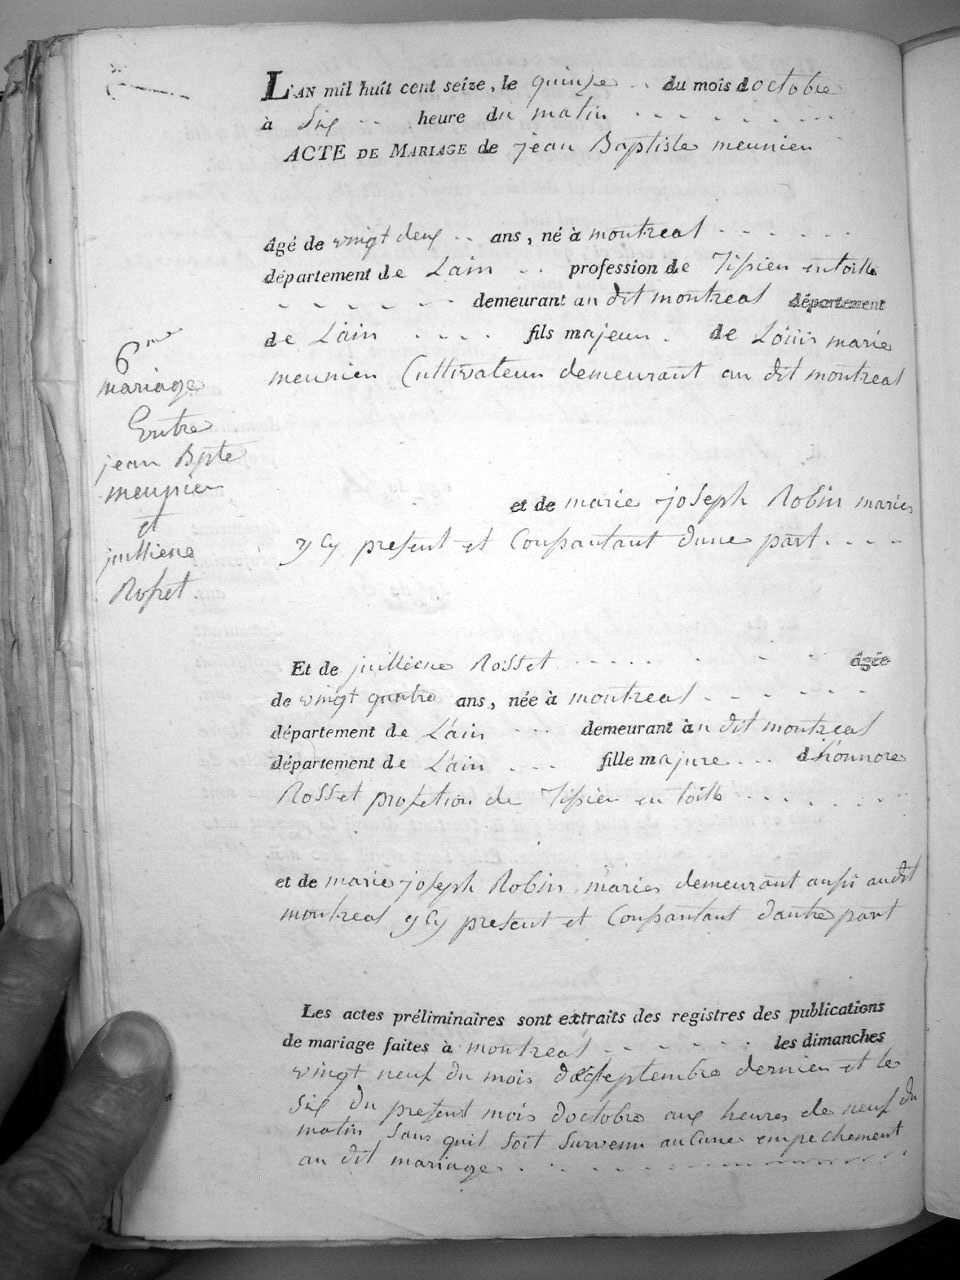 L'AN mil huit cent seize, le quinze du mois doctobre
à Six heure du matin
ACTE DE MARIAGE de jean Baptiste meunier
âgé de vingt deux ans, né à montreal
département de Lain profession de Tissien en toille
demeurant au dit montreal département
de L'ain fils majeur de Louis marie
meunier Cultivateur demeurant au dit montreal
et de marie joseph Robin maries
y Cy present et Consantant dune part
Et de juilliene Rosset âgée
de vingt quatre ans, née à montreal
département de L'ain demeurant àu dit montreal
département de L'ain fille majure d'honnore
Rosset profetion de Tissien en toille
et de marie joseph Robin maries demeurant aussi au dit
montreal y Cy present et Consantant dautre part
Les actes préliminaires sont extraits des registres des publications
de mariage faites à montreal les dimanches
vingt neuf du mois de septembre dernier et le
Six du present mois doctobre aux heures de neuf du
matin Sans quil Soit Survenu auCune empechement
au dit mariage
6me
mariage
Entre
jean Bpte
meunier
et
juilliene
Rosset